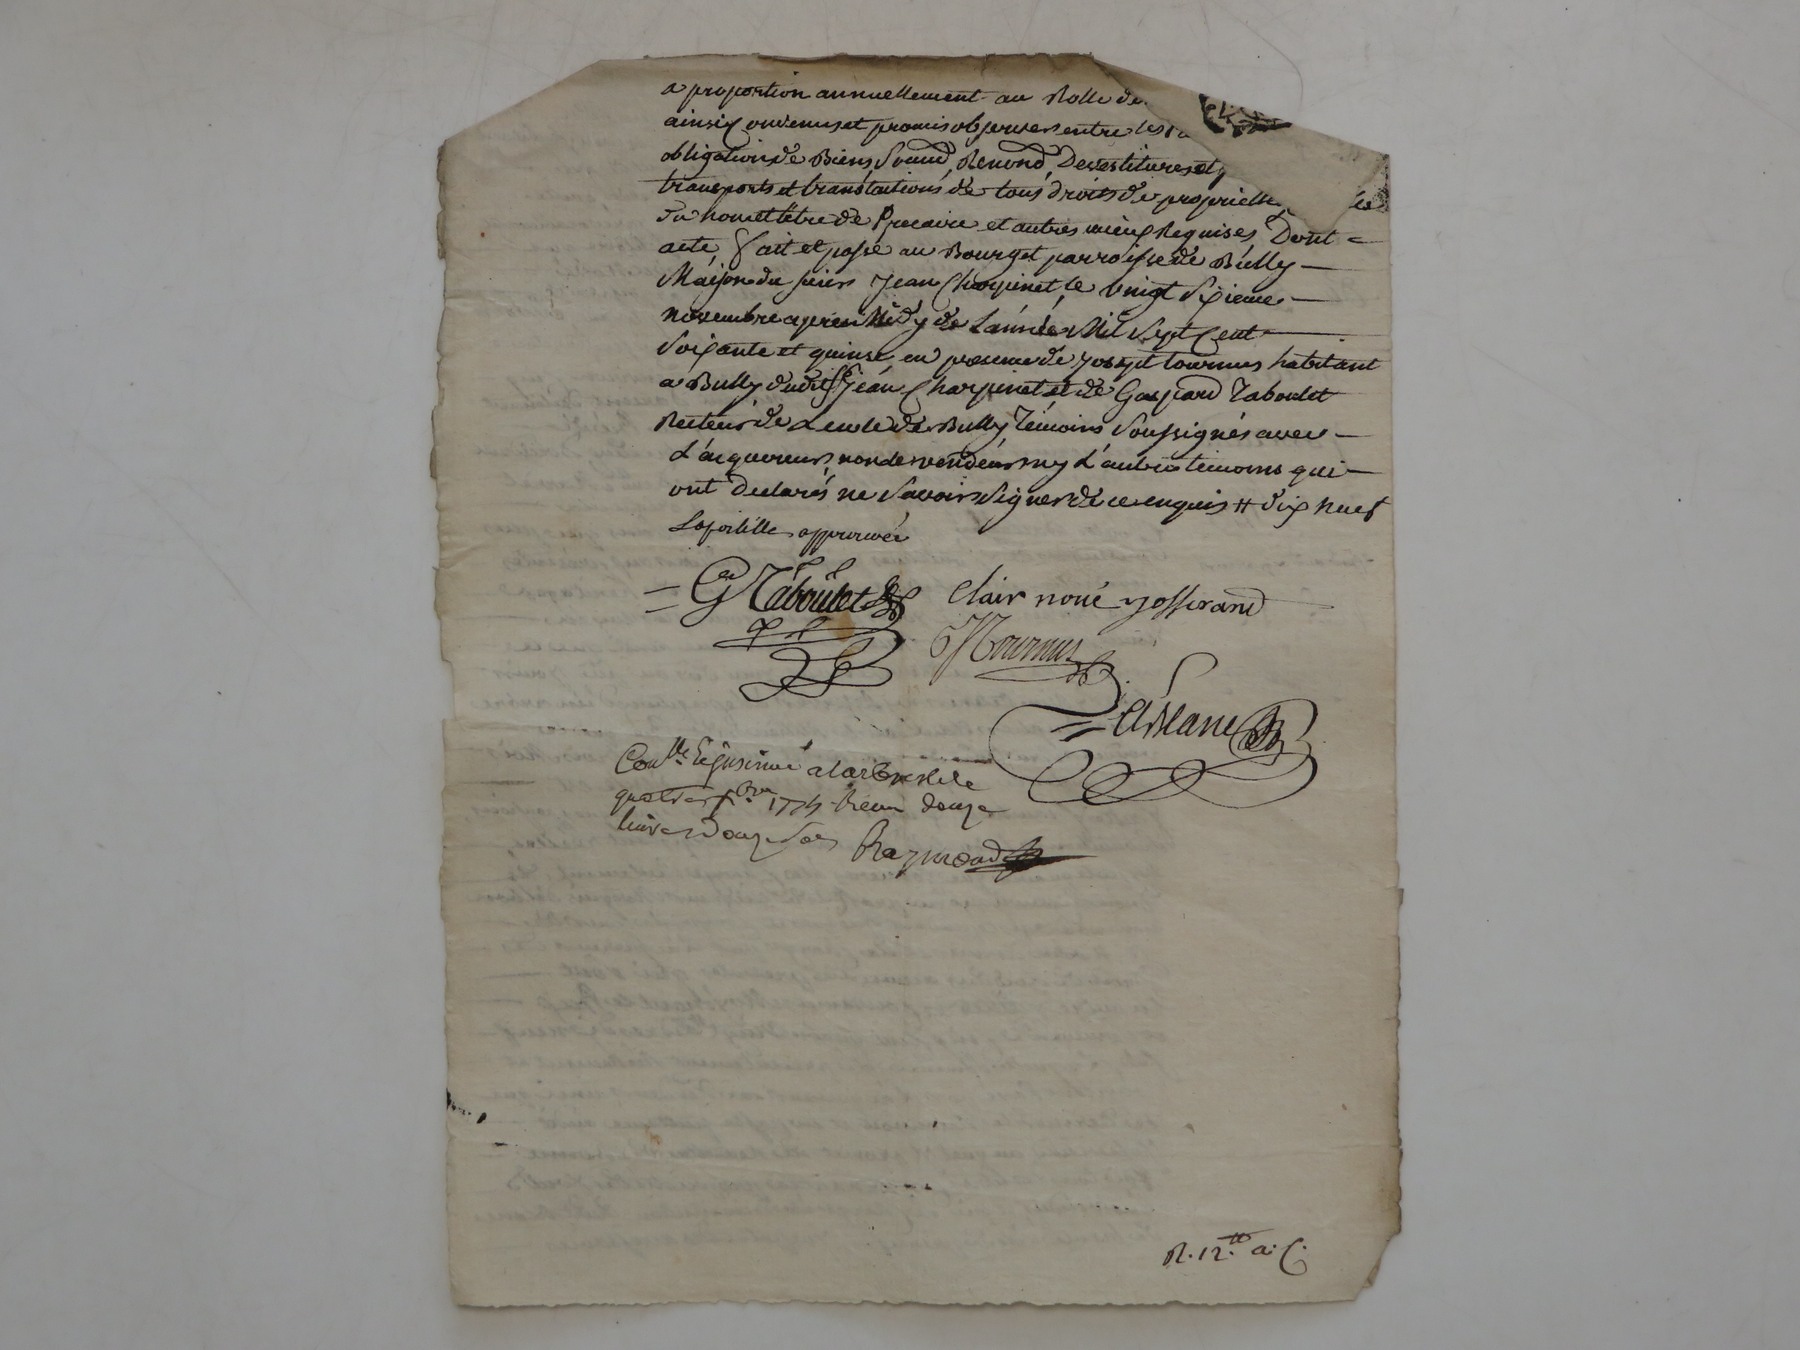 a proportion annuellement au Rolle de
ainsi convenus et promis observer entre les
obligation de Biens, Soumis, Renond, Devestitures et
transports et translations de tous droits de proprieté
du nom et tître de Precaire et autres mieux Requises Dont
acte, fait et passé au Bourg et parroisse de Bully
Maison du sieur Jean Charpinet le vingt Sixieme
novembre apres Midy de L'année Mil Sept Cent
Soixante et quinse en presence de Joseph tournus habitant
a Bully dudit Sr Jean Charpinet et de Gaspard Taboulet
Recteur de Lecole de Bully Témoins Soussignés avec
L'acquereur, non les vendeurs ny L'autre temoins qui
ont declarés ne Savoir Signer de ce enquis # dix huet
Lapostille approuvée
G Taboulet Clair noué yosserand
J Tournus
Conlle Insinué a larbresle le
quatre xbre 1775 Receu douze
livres Douze Sols Raymond
R. 12.tt a. C.